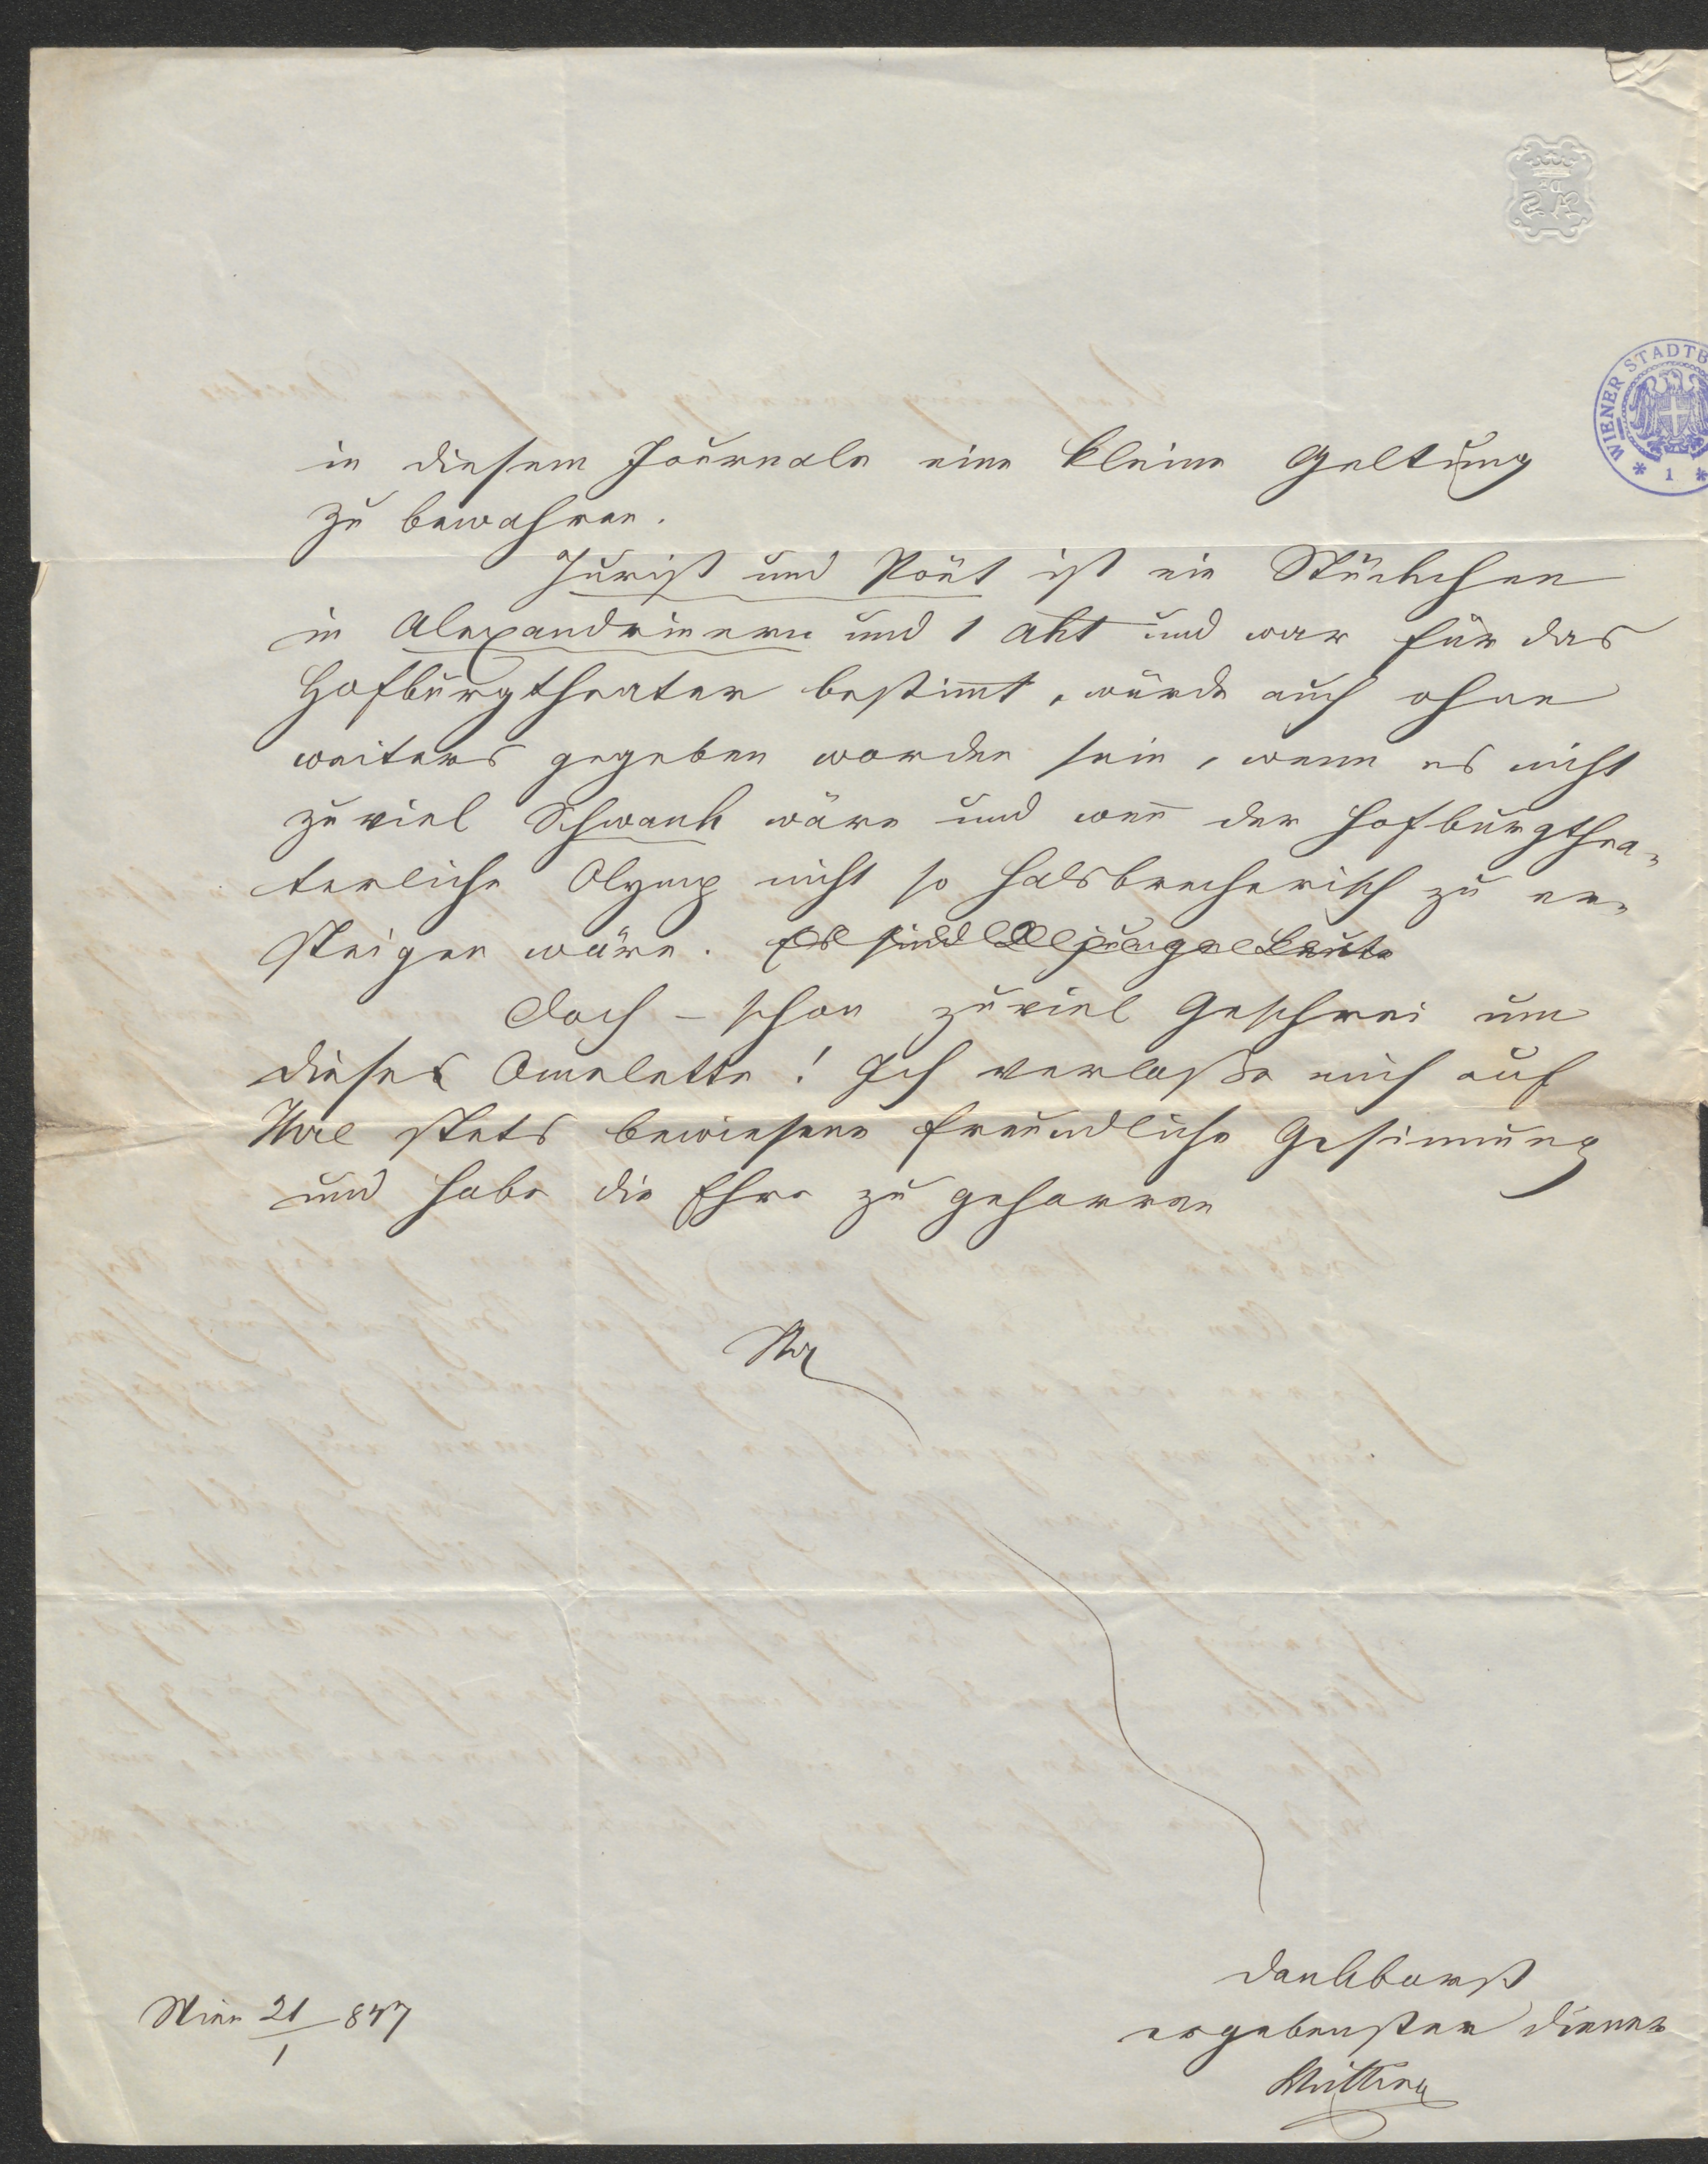 WIENER STADTB
* 1 *
in diesem Journale eine kleine Geltung
zu bewahren.
Jurist und Poët ist ein Stückchen
in Alexandrinern und 1 Akt und war für das
Hofburgtheater bestimmt, würde auch ohne
weiters gegeben worden sein, wenn es nicht
zuviel Schwank wäre und wen̅ der Hofburgthea-
terliche Olymp nicht so halsbrecherisch zu er-
steigen wäre. Es sind junge Leute
Doch – schon zuviel Geschrei um
dieses Omelette! Ich verlaße mich auf
Ihre stets bewiesene freundliche Gesinnung
und habe die Ehre zu geharren
Ihr
dankbarst
ergebenster Diener
Wien 21/1 847